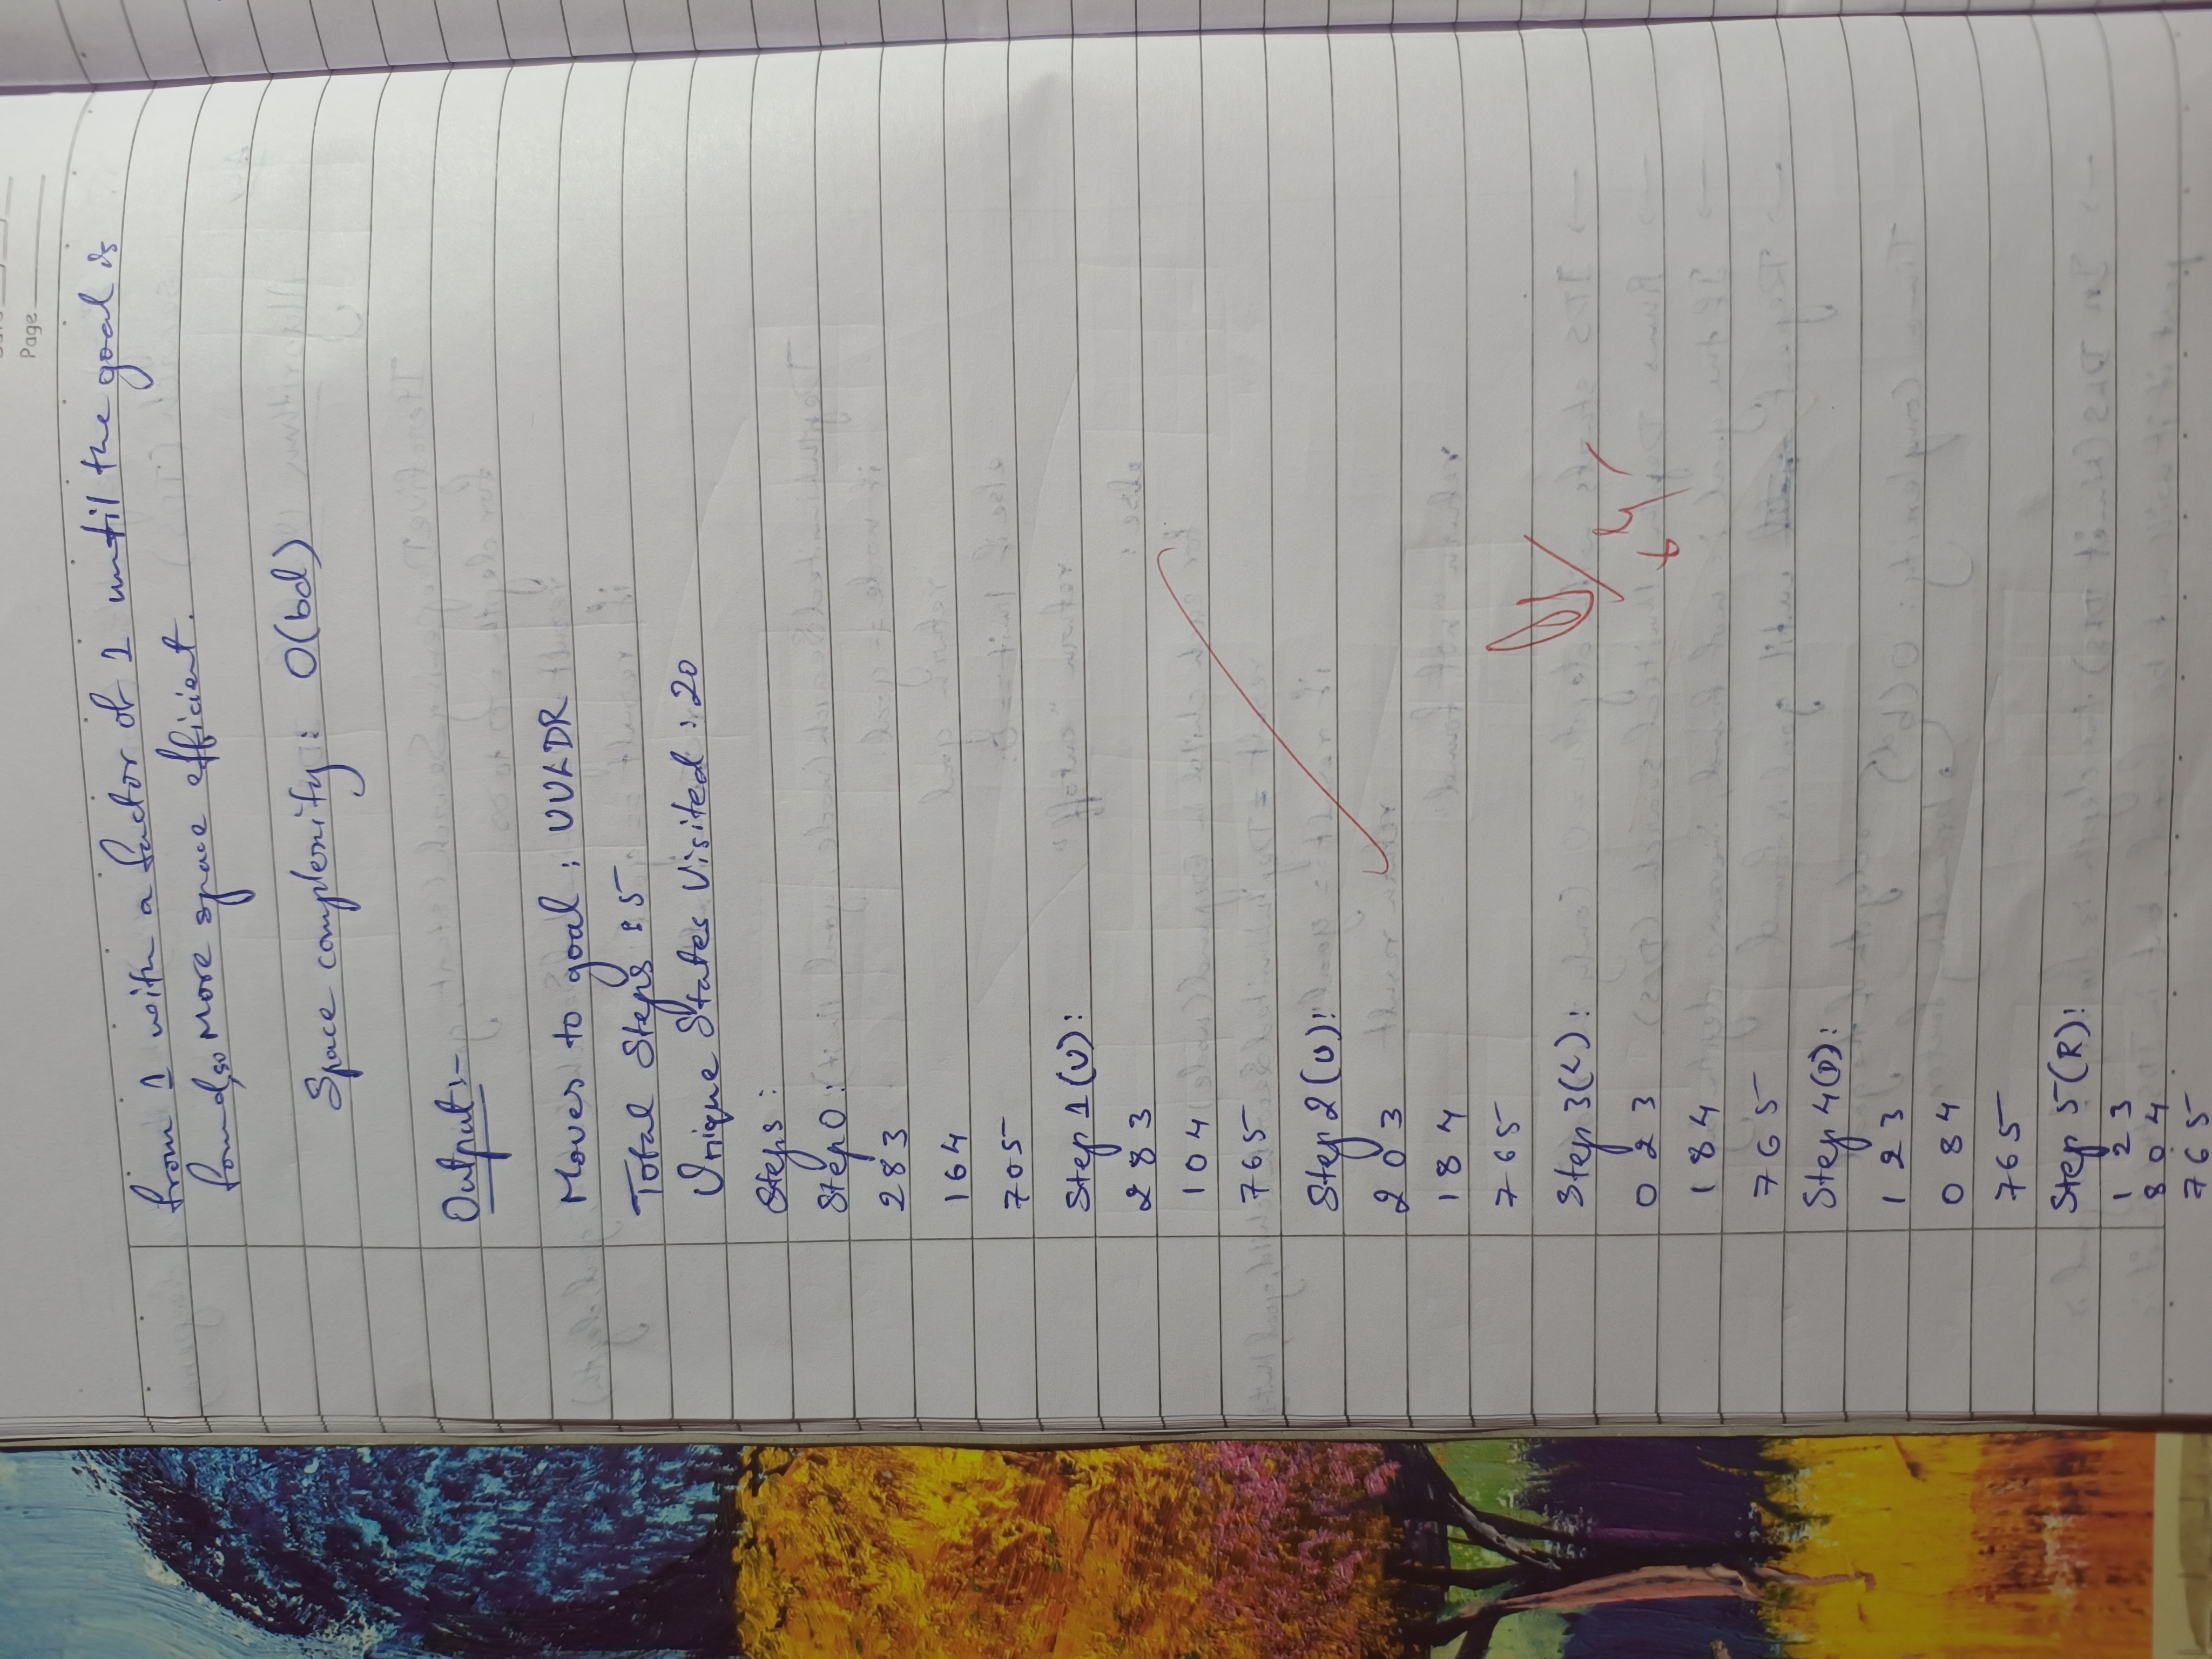 Page
from 1 with a factor of 1 until the goal is
found, so More space efficient.
Space complexity : O(bd)
Output :-
Moves to goal : UULDR
Total Steps : 5
Unique States Visited : 20
Steps :
Step 0 :
2 8 3
1 6 4
7 0 5
Step 1 (U) :
2 8 3
1 0 4
7 6 5
Step 2 (U) :
2 0 3
1 8 4
7 6 5
Step 3 (L) :
0 2 3
1 8 4
7 6 5
Step 4 (D) :
1 2 3
0 8 4
7 6 5
Step 5 (R) :
1 2 3
8 0 4
7 6 5